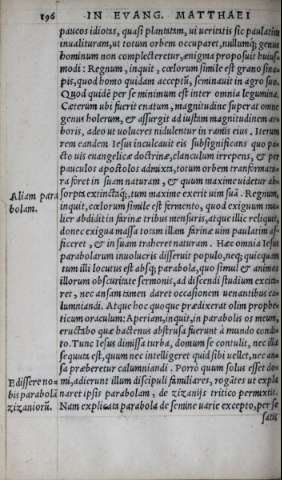 196 IN EVANG. MATTHAEI
paucos idiotas, quasi plantulam, ut ueritatis sic paulatim
inualituram, ut totum orbem occuparet, nullumq; genus
hominum non complecteretur, ænigma proposuit huius
modi: Regnum, inquit, cœlorum simile est grano sina-
pis, quod homo quidam acceptū, seminauit in agro suo.
Quod quidē per se minimum est inter omnia legumina.
Cæterum ubi fuerit enatum, magnitudine superat omne
genus holerum, & assurgit ad iustam magnitudinem ar-
boris, adeo ut uolucres nidulentur in ramis eius. Iterum
rem eandem Iesus inculcauit eis subsignificans quo pa-
cto uis euangelicæ doctrinæ, clanculum irrepens, & per
pauculos apostolos admixta, totum orbem transformatu-
ra foret in suam naturam, & quum maxime uidetur ab-
Aliam para sorpta extinctaq;, tum maxime exerit uim suā. Regnum,
bolam. inquit, cœlorum simile est fermento, quod exiguum mu-
lier abdidit in farinæ tribus mensuris, atque illic reliquit,
donec exigua massa totam illam farinæ uim paulatim af-
ficeret, & in suam traheret naturam. Hæc omnia Iesus
parabolarum inuolucris disseruit populo, neq; quicquam
tum illi locutus est absq; parabola, quo simul & animos
illorum obscuritate sermonis, ad discendi studium excita-
ret, nec ansam tamen daret occasionem uenantibus ca-
lumniandi. Atque hoc quoque prædixerat olim prophe-
ticum oraculum: Aperiam, inquit, in parabolis os meum,
eructabo quæ hactenus abstrusa fuerunt à mundo condi-
to. Tunc Iesus dimissa turba, domum se contulit, nec illā
sequuta est, quum nec intelligeret quid sibi uellet, nec an-
sa præberetur calumniandi. Porrò quum solus esset do-
Edissere no mi, adierunt illum discipuli familiares, rogātes ut expla
bis parabolā naret ipsis parabolam, de zizanijs tritico permixtis.
zizaniorū. Nam explicata parabola de semine uarie excepto, per se
satis